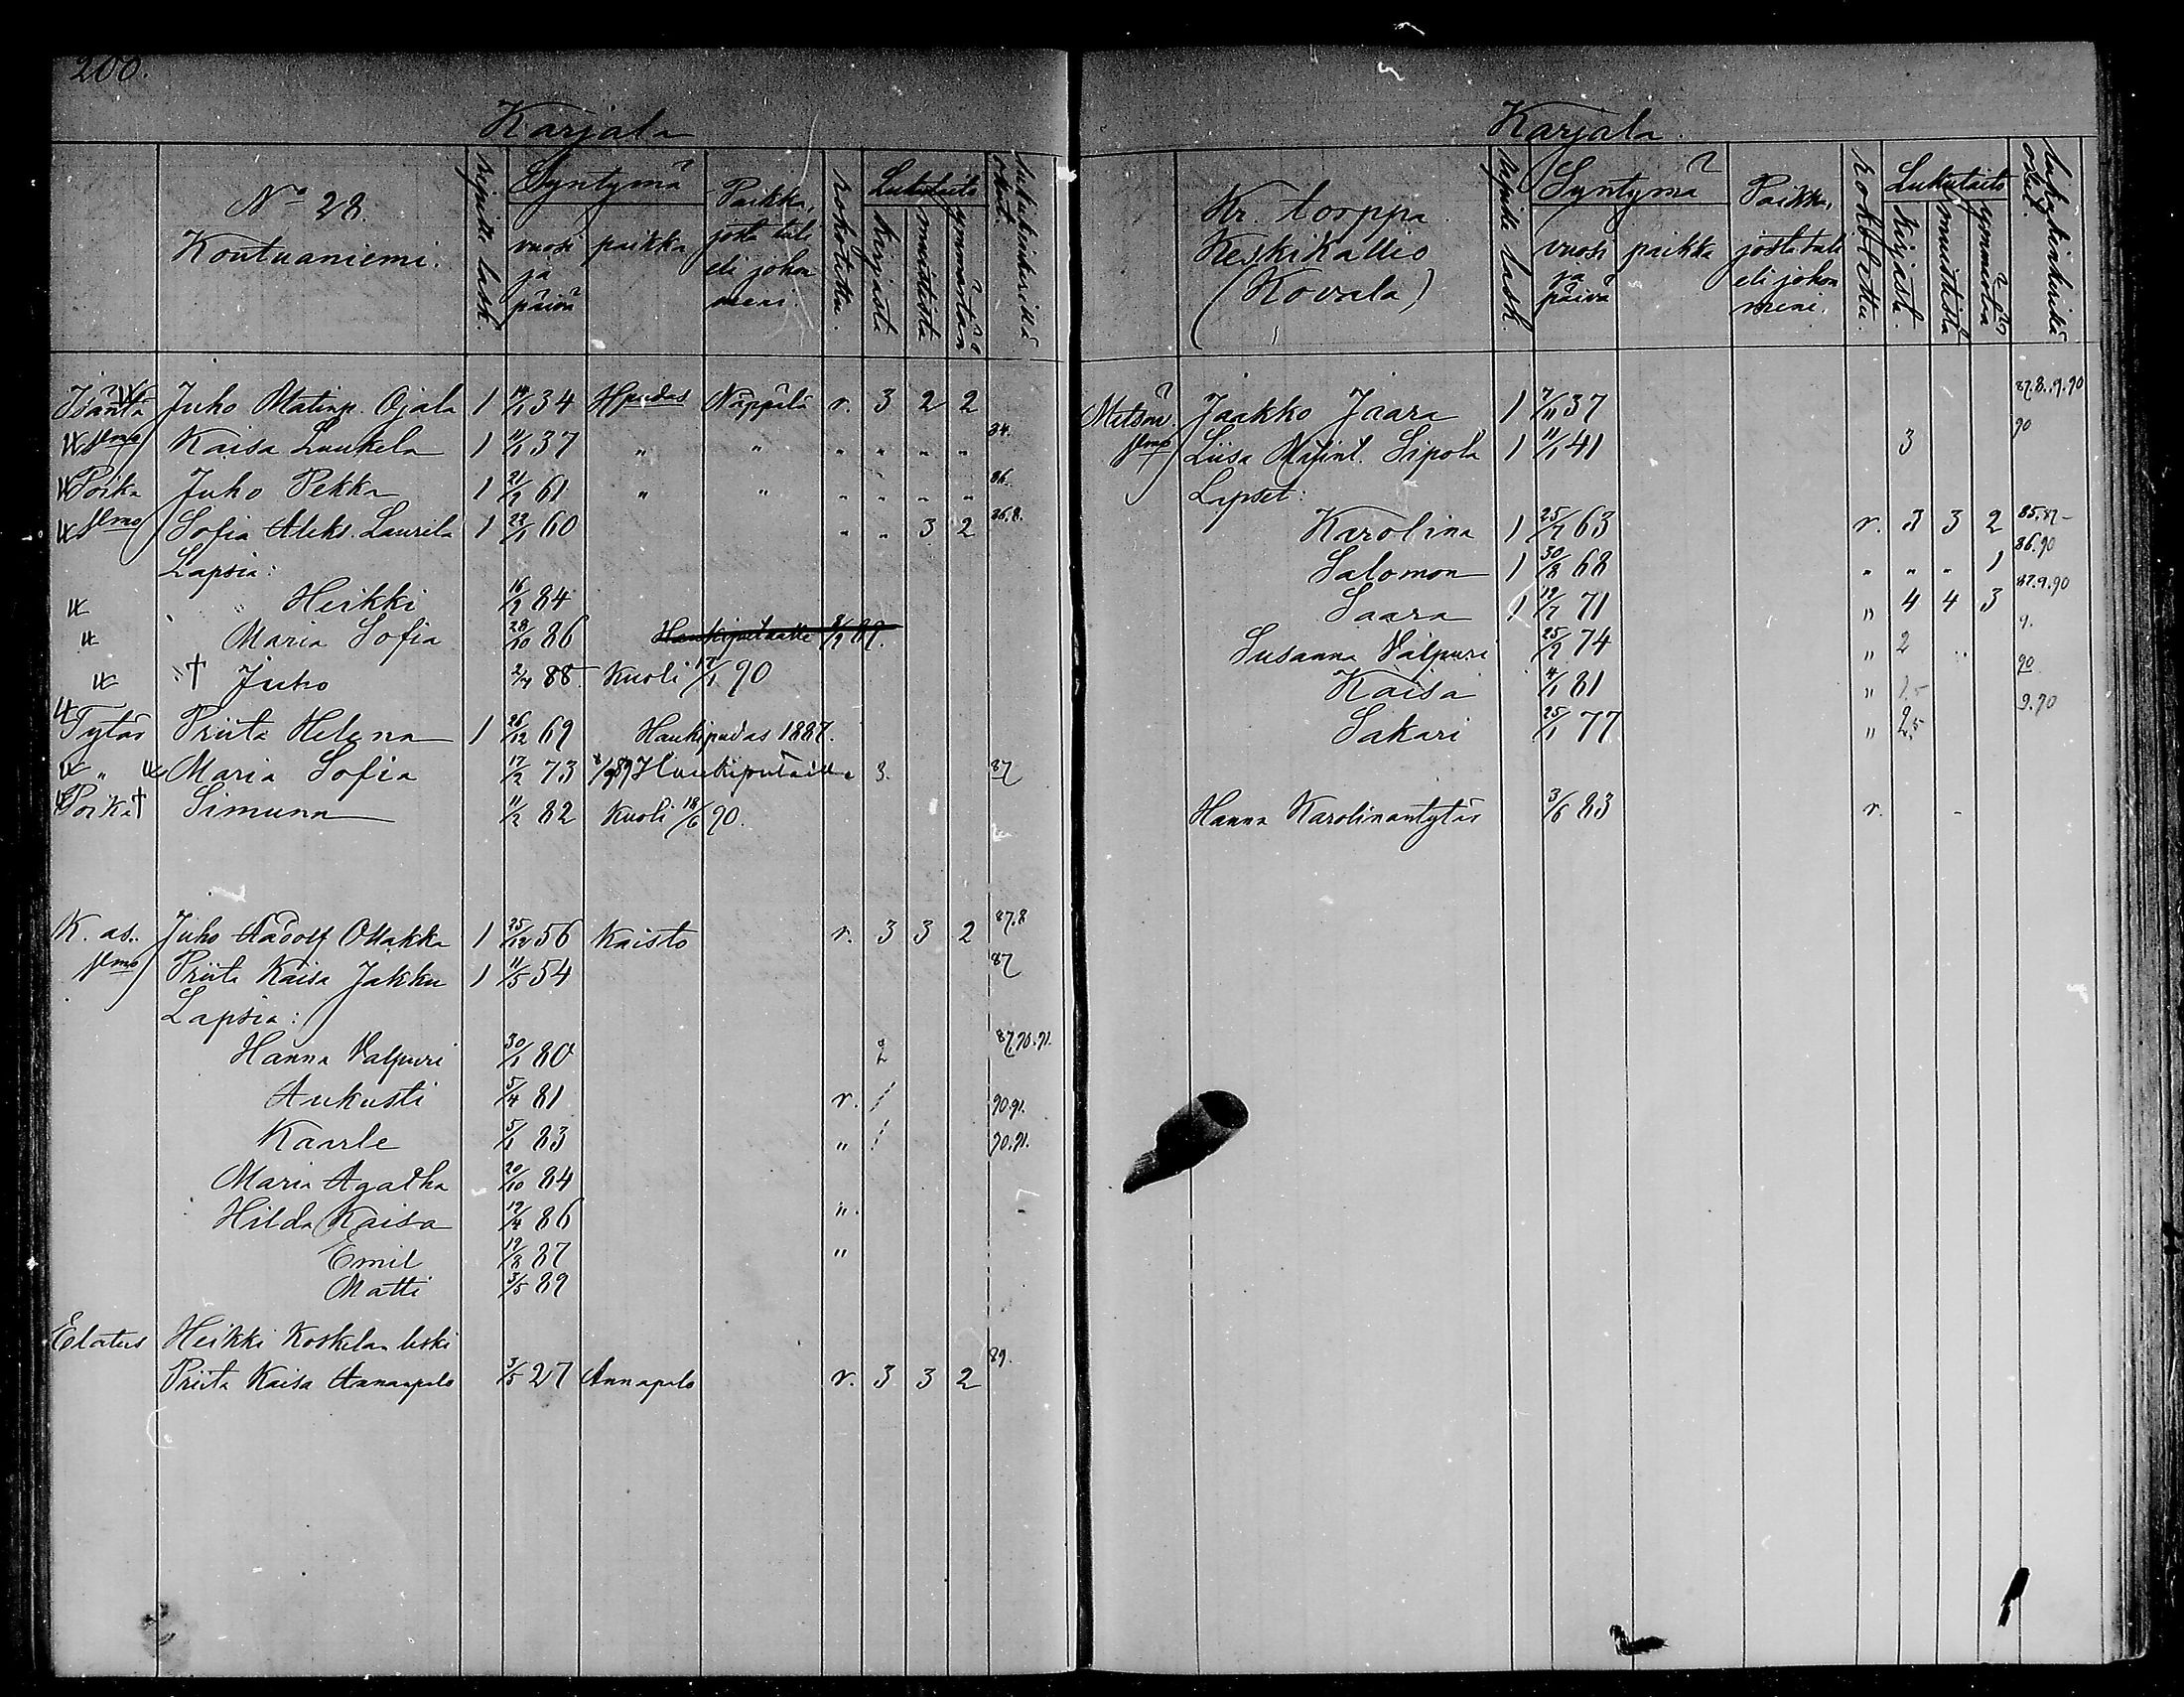 200.
Karjala
No 28.
Kontuaniemi.
Ripille lask.
Syntymä
vuosi ja päivä
paikka
Paikka, josta tuli eli johon meni.
rokotettu.
Lukutaito
kirjasta
muistista
ymmärtää
Isäntä Juho Matinp. Ojala 1 14/1 34 Hpudas Näppälä r. 3 2 2
Vmo Kaisa Luukela 1 11/1 37 " " " " " " 84.
Poika Juho Pekka 1 21/2 61 " " " " " " 86.
Vmo Sofia Aleks. Laurila 1 22/1 60 " " 3 2 86.8.
Lapsia:
" Heikki 16/2 84
Maria Sofia 28/10 86 Haukiputaalle 8/9 89.
" † Juho 2/4 88. Kuoli 17/1 90
Tytär Priita Helena 1 26/12 69 Haukipudas 1887.
" Maria Sofia 17/2 73 8/9 89 Haukiputaalle 3. 87
Poika † Simuna 11/2 82 Kuoli 18/6 90.
K. as. Juho Aadolf Makka 1 25/12 56 Kaisto r. 3 3 2 87.8
Vmo Priita Kaisa Jakku 1 11/5 54 87
Lapsia:
Hanna Valpuri 30/1 80 2 87.90.91.
Aukusti 5/4 81 r. / 90.91.
Kaarle 5/1 83 " / 90.91.
Maria Agatha 20/10 84
Hilda Kaisa 19/4 86 "
Emil 19/8 87 "
Matti 3/5 89
Elatus Heikki Koskelan leski
Priita Kaisa Annanpalo 3/5 27 Annapalo r. 3 3 2 89.
Karjala.
Kr. torppa
Keskikallio
(Kovala)
Ripille lask.
Syntymä
vuosi ja päivä
paikka
Paikka, josta tuli eli johon meni.
rokotettu.
Lukutaito
kirjasta.
muistista
Jaakko Jaara 1 7/11 37 87.8.9.90
Vmo Liisa Sipola 1 11/1 41 3 90
Lapset:
Karolina 1 25/7 63 r. 3 3 2 85.87-
Salomon 1 30/8 68 " " " 1 86.90
Saara 1 19/7 71 " 4 4 3 87.9.90
Susanna Valpuri 25/2 74 " 2 9.
Kaisa 4/1 81 " 1,5 90
Sakari 25/1 77 " 2,5 9.90
Hanna Karolinantytär 3/6 83 r. -